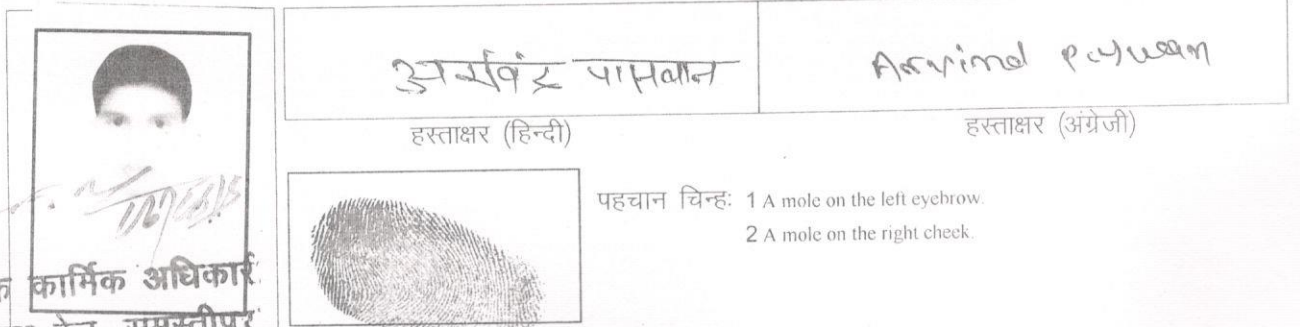 अरविंद्र पासवान
Arvind Paswan
हस्ताक्षर (हिन्दी)
हस्ताक्षर (अंग्रेजी)
पहचान चिन्हः 1 A mole on the left eyebrow.
2 A mole on the right cheek.
कार्मिक अधिकारी
समस्तीपुर